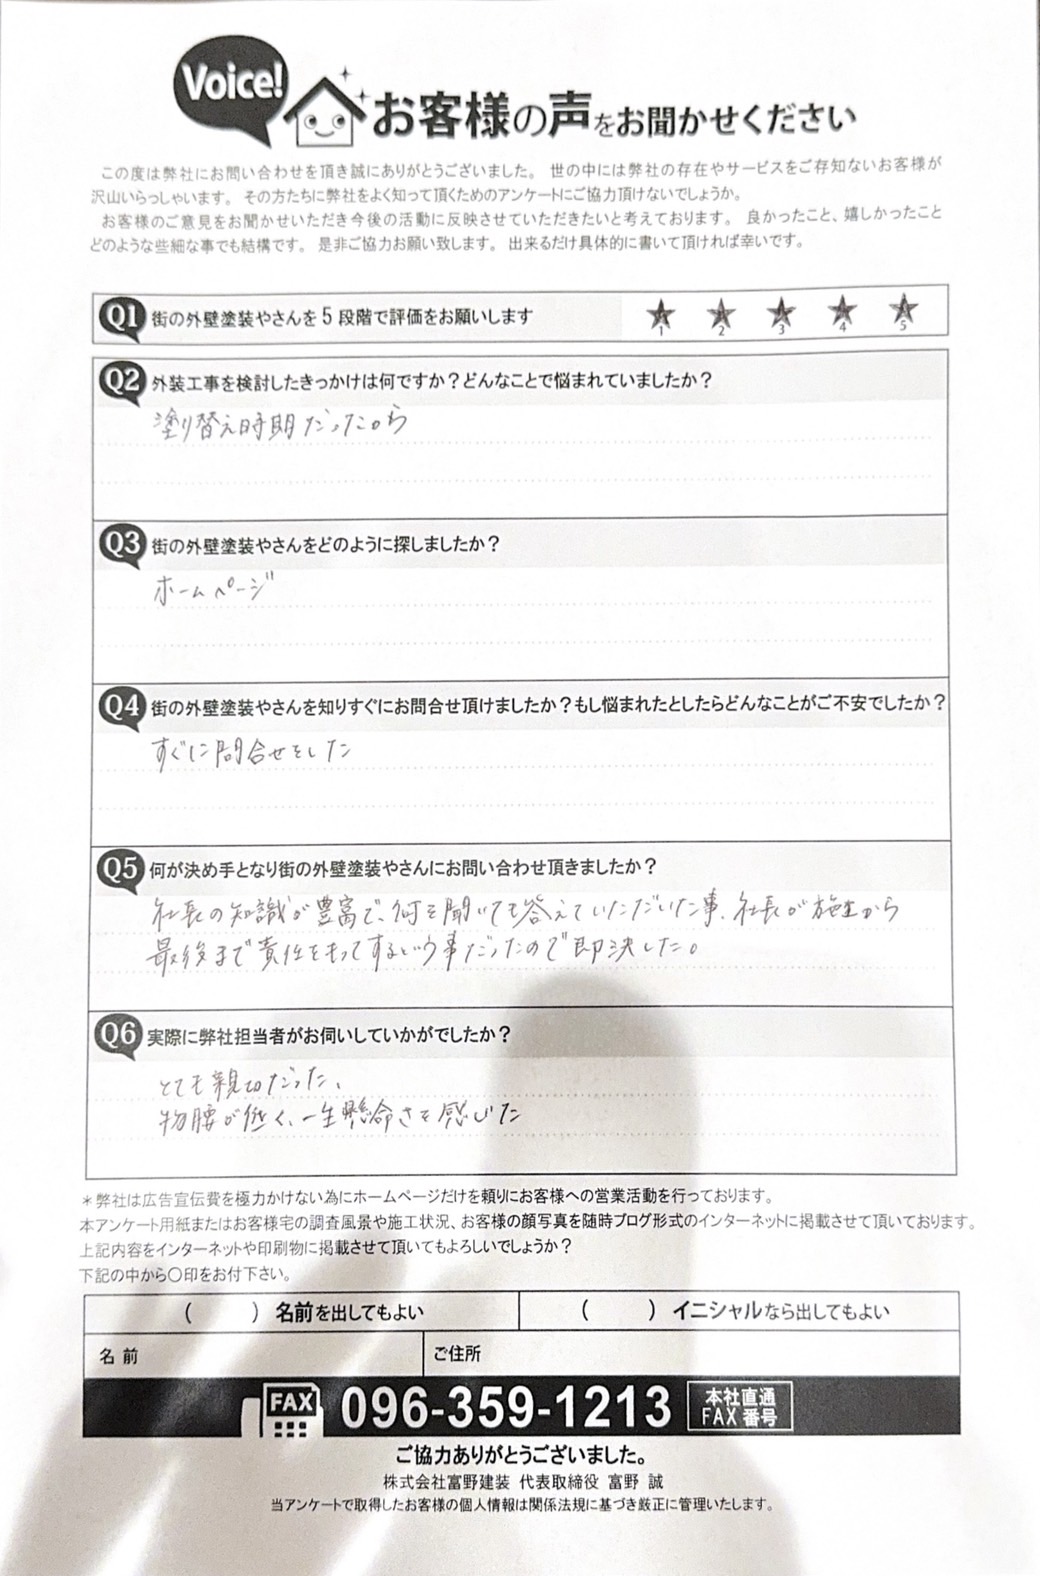 Voice!
お客様の声をお聞かせください
この度は弊社にお問い合わせを頂き誠にありがとうございました。 世の中には弊社の存在やサービスをご存知ないお客様が
沢山いらっしゃいます。 その方たちに弊社をよく知って頂くためのアンケートにご協力頂けないでしょうか。
お客様のご意見をお聞かせいただき今後の活動に反映させていただきたいと考えております。 良かったこと、嬉しかったこと
どのような些細な事でも結構です。 是非ご協力お願い致します。 出来るだけ具体的に書いて頂ければ幸いです。
Q1 街の外壁塗装やさんを5段階で評価をお願いします
1 2 3 4 5
Q2 外装工事を検討したきっかけは何ですか？どんなことで悩まれていましたか？
塗り替え時期だったから
Q3 街の外壁塗装やさんをどのように探しましたか？
ホームページ
Q4 街の外壁塗装やさんを知りすぐにお問合せ頂けましたか？もし悩まれたとしたらどんなことがご不安でしたか？
すぐに問合せをした
Q5 何が決め手となり街の外壁塗装やさんにお問い合わせ頂きましたか？
社長の知識が豊富で、何を聞いても答えていただいた事、社長が施工から
最後まで責任をもってするという事だったので即決した。
Q6 実際に弊社担当者がお伺いしていかがでしたか？
とても親切だった、
物腰が低く、一生懸命さを感じた
＊弊社は広告宣伝費を極力かけない為にホームページだけを頼りにお客様への営業活動を行っております。
本アンケート用紙またはお客様宅の調査風景や施工状況、お客様の顔写真を随時ブログ形式のインターネットに掲載させて頂いております。
上記内容をインターネットや印刷物に掲載させて頂いてもよろしいでしょうか？
下記の中から〇印をお付下さい。
（　　）名前を出してもよい （　　）イニシャルなら出してもよい
名前 ご住所
FAX 096-359-1213 本社直通
FAX番号
ご協力ありがとうございました。
株式会社富野建装 代表取締役 富野 誠
当アンケートで取得したお客様の個人情報は関係法規に基づき厳正に管理いたします。